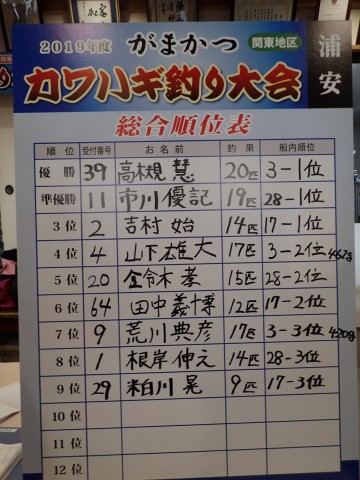 2019年度 がまかつ 関東地区 浦安
カワハギ釣り大会
総合順位表
順位 受付番号 お名前 釣果 船内順位
優勝 39 高槻 慧 20匹 3-1位
準優勝 11 市川優記 19匹 28-1位
3位 2 吉村 始 14匹 17-1位
4位 4 山下雄大 17匹 3-2位
5位 20 鈴木 孝 15匹 28-2位
6位 64 田中義博 12匹 17-2位
7位 9 荒川典彦 17匹 3-3位
8位 1 根岸伸元 14匹 28-3位
9位 29 粕川 晃 9匹 17-3位
10位
11位
12位